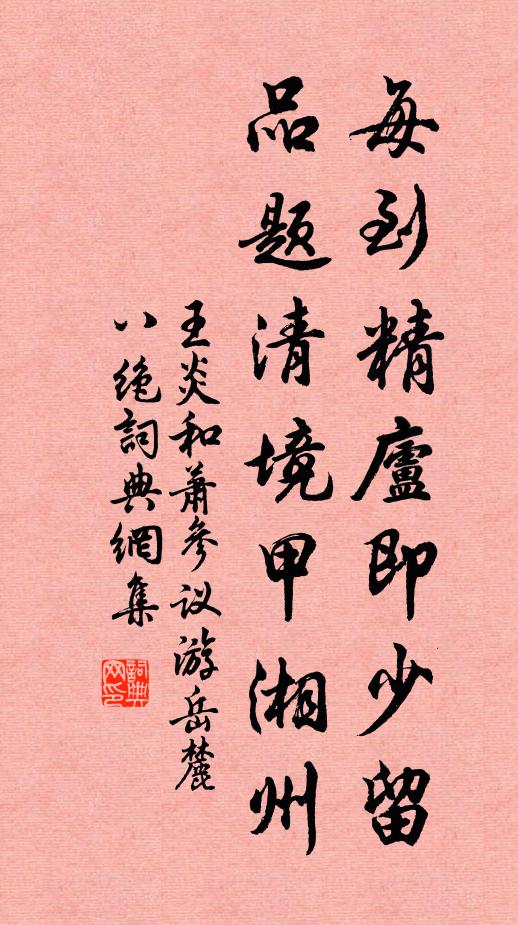 每到精廬即少留
品題清境甲湘州
王炎和萧參议游岳麓
八绝詞典網集
詞典网印